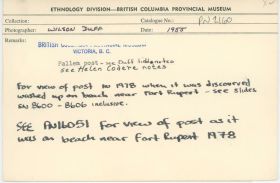 ETHNOLOGY DIVISION—BRITISH COLUMBIA PROVINCIAL MUSEUM
Collection: Catalogue No.: PN 2160
Photographer: WILSON DUFF Date: 1955
Remarks:
BRITISH COLUMBIA PROVINCIAL MUSEUM
VICTORIA, B. C.
Fallen post - see Duff fieldnotes
see Helen Codere notes
For view of post in 1978 when it was discovered
washed up on beach near Fort Rupert - see slides
SN 8600 - 8606 inclusive.
SEE PN16051 for view of post as it
was on beach near Fort Rupert 1978